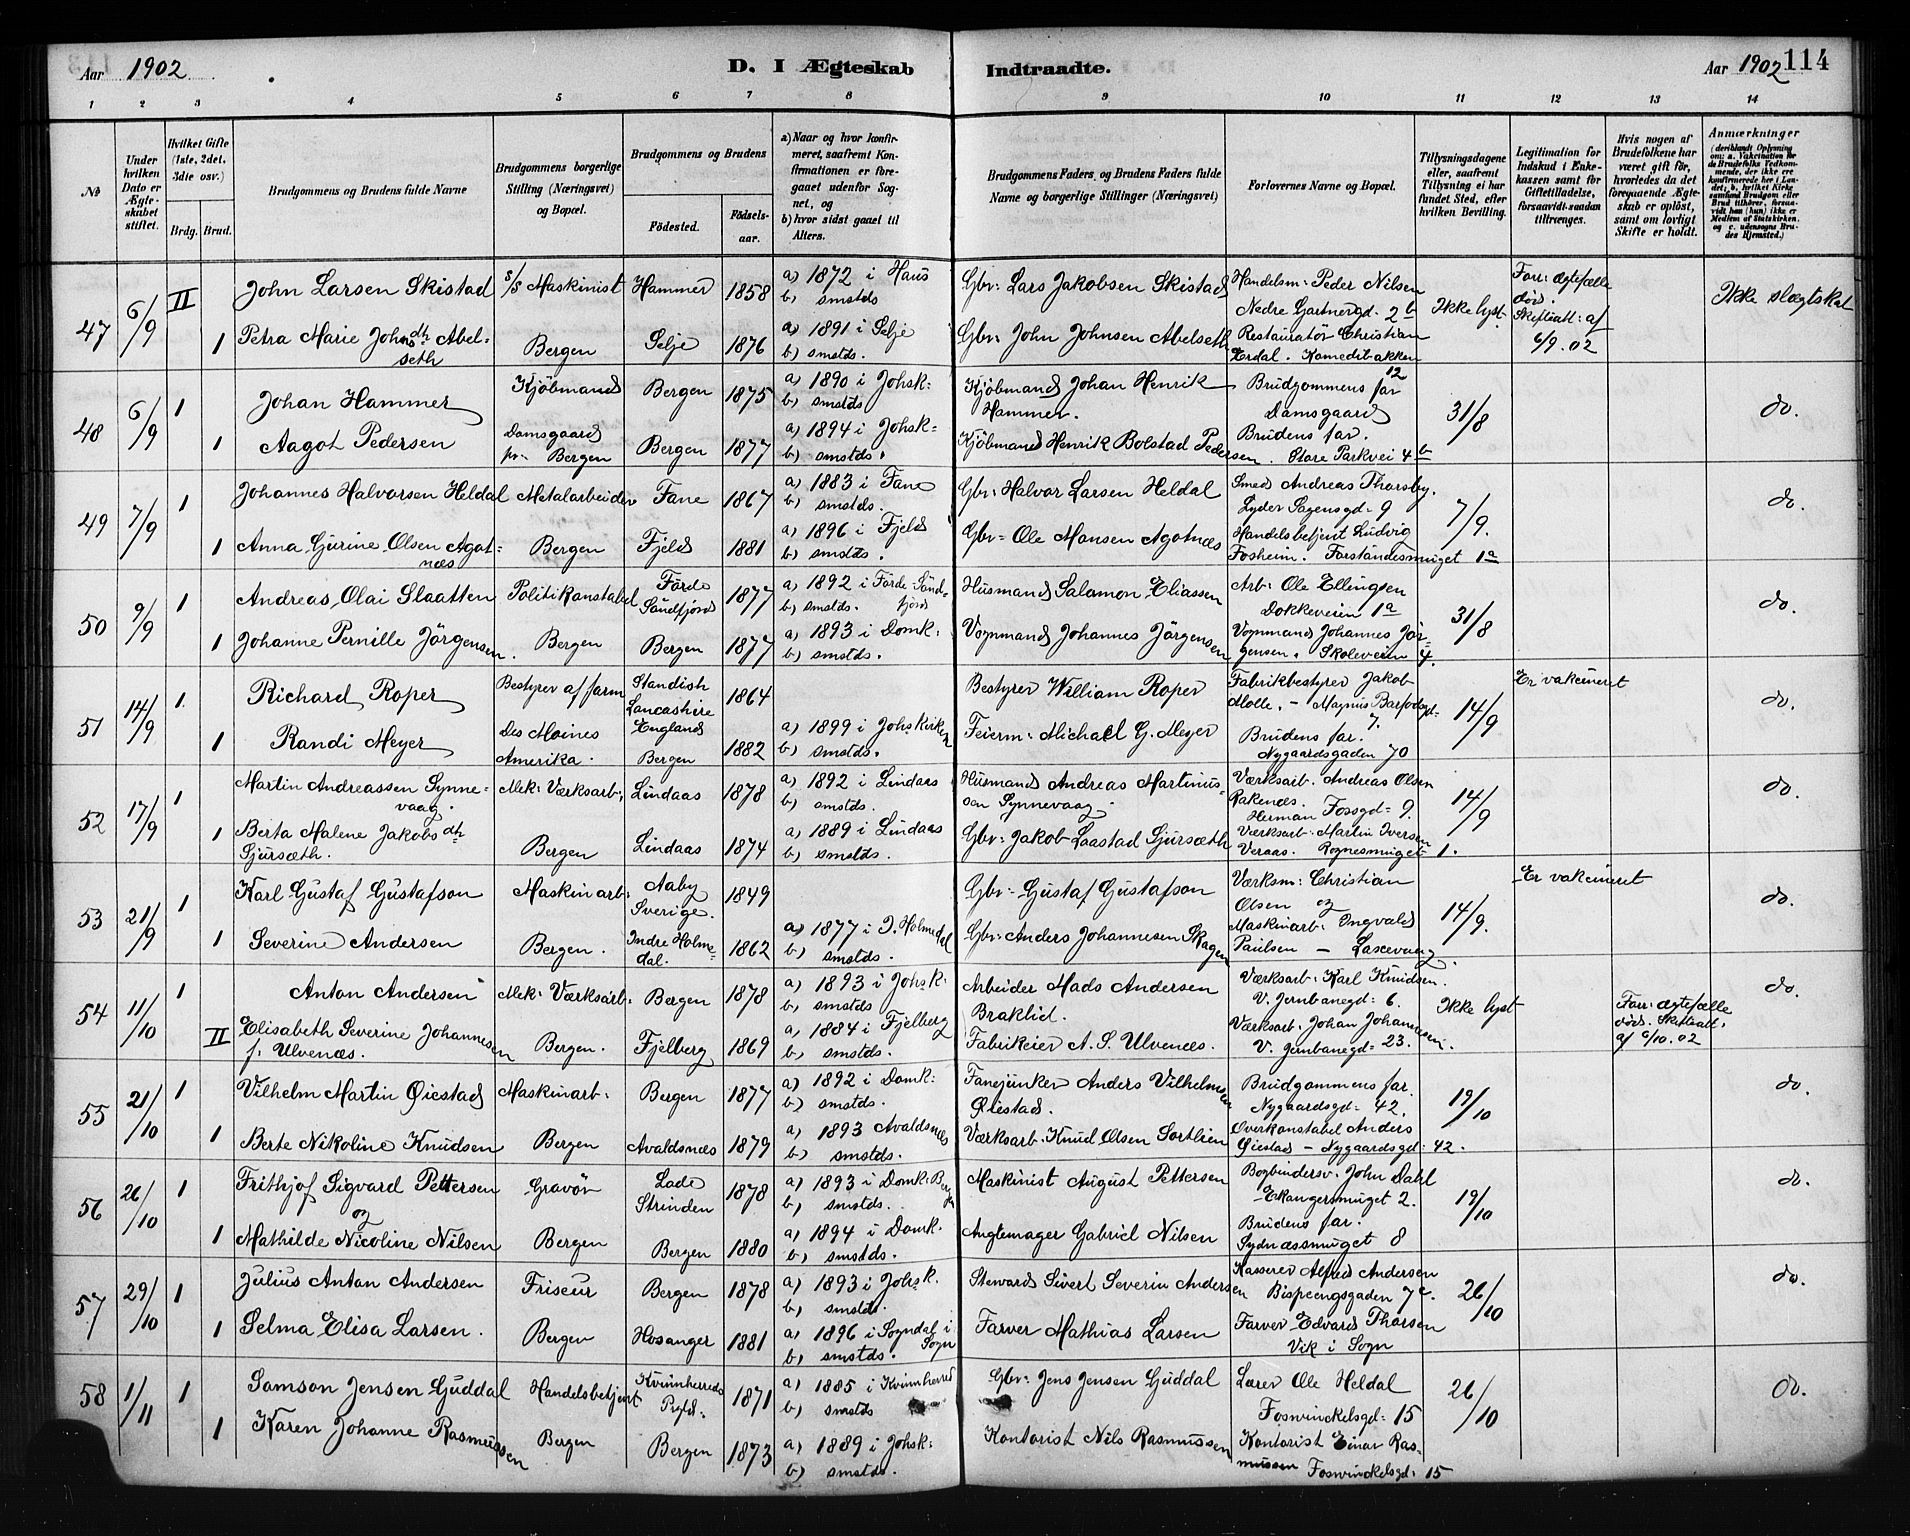 Aar 1902
D. I Ægteskab Indtraadte.
Aar 1902 114
1 2 3 4 5 6 7 8 9 10 11 12 13 14
No
Under hvilken Dato er Ægteskabet stiftet.
Hvilket Gifte (1ste, 2det, 3die osv.)
Brdg. Brud.
Brudgommens og Brudens fulde Navne
Brudgommens borgerlige Stilling (Næringsvei) og Bopæl.
Brudgommens og Brudens
Fødested.
Fødselsaar.
a) Naar og hvor konfirmeret, saafremt Konfirmationen er foregaaet udenfor Sognet, og
b) hvor sidst gaaet til Alters.
Brudgommens Faders og Brudens Faders fulde Navne og borgerlige Stillinger (Næringsvei)
Forlovernes Navne og Bopæl.
Tillysningsdagene eller, saafremt Tillysning ei har fundet Sted, efter hvilken Bevilling.
Legitimation for Indskud i Enkekassen samt for Giftetilladelse, forsaavidt saadan tiltrænges.
Hvis nogen af Brudefolkene har været gift før, hvorledes da det foregaaende Ægteskab er opløst, samt om lovligt Skifte er holdt.
Anmærkninger (deriblandt Oplysning om: a. Vakcination for de Brudefolks Vedkommende, der ikke ere konfirmerede her i Landet; b. hvilket Kirkesamfund Brudgom eller Brud tilhører, forsaavidt han (hun) ikke er Medlem af Statskirken, og c. udensogns Brudes Hjemsted.)
47 6/9 II John Larsen Skistad s/s Maskinist Hammer 1858 a) 1872 i Haus b) smstds Gbr: Lars Jakobsen Skistad Handelsm: Peder Nilsen Nedre Gartnergd. 2b Ikke lyst. Forr: ægtefælle død. Skifteatt: af 6/9.02 Ikke slægtskab
1 Petra Marie Johnsdh Abelseth Bergen Selje 1876 a) 1891 i Selje b) smstds. Gbr: John Johnsen Abelseth Restauratør Christian Erdal. Komediebakken 12
48 6/9 1 Johan Hammer Kjøbmand Bergen 1875 a) 1890 i Johsk: b) smstds Kjøbmand Johan Henrik Hammer. Brudgommens far Damsgaard 31/8 do.
1 Aagot Pedersen Damsgaard pr. Bergen Bergen 1877 a) 1894 i Johsk: b) smstds. Kjøbmand Henrik Bolstad Pedersen. Brudens far. Store Parkvei 4b
49 7/9 1 Johannes Halvorsen Heldal Metalarbeider Fane 1867 a) 1883 i Fane b) smstds. Gbr: Halvor Larsen Heldal Smed Andreas Thorsby. Lyder Sagensgd: 9 7/9. do.
1 Anna Gurine Olsen Agotnæs Bergen Fjeld 1881 a) 1896 i Fjeld b) smstds. Gbr: Ole Monsen Agotnæs Handelsbetjent Ludvig Fosheim. Forstandesmuget 1a
50 9/9 1 Andreas Olai Slaatten Politikonstabel Førde Søndfjord 1877 a) 1892 i Førde-Søndfjord b) smstds. Husmand Salamon Eliassen Arb: Ole Ellingsen Dokkeveien 1a 31/8 do.
1 Johanne Pernille Jørgensen. Bergen Bergen 1877 a) 1893 i Domk: b) smstds. Vognmand Johannes Jørgensen Vognmand Johannes Jørgensen. Skoleveien 4.
51 14/9 1 Richard Roper Bestyrer af farm Standish Lancashire England 1864 Bestyrer William Roper Fabrikbestyrer Jakob Molle. - Magnus Barfodsgd: 7. 14/9 Er vakcineret do.
1 Randi Meyer Des Moines Amerika. Bergen 1882 a) 1899 i Johskirken b) smstds. Feierm: Michael G. Meyer Brudens far. Nygaardsgaden 70
52 17/9 1 Martin Andreassen Synnevaag. Mek: Værksarb: Lindaas 1878 a) 1892 i Lindaas b) smstds. Husmand Andreas Martinussen Synnevaag. Værksarb. Andreas Olsen Rakenæs. Herman Fossgd: 9. 14/9 do.
1 Berta Malene Jakobsdh Sjursæth. Bergen Lindaas 1874 a) 1889 i Lindaas b) smstds. Gbr: Jakob Laastad Sjursæth Værksarb: Martin Iversen Veraas. Rognesmuget 1.
53 21/9 1 Karl Gustaf Gustafson Maskinarb: Aaby Sverige. 1849 Gbr: Gustaf Gustafson Værksm: Christian Olsen og 14/9. Er vakcineret do.
1 Severine Andersen Bergen. Indre Holmedal. 1862 a) 1877 i I. Holmedal b) smstds. Gbr: Anders Johannesen Skagen Maskinarb: Ingvald Paulsen - Laxevaag.
54 11/10 1 Anton Andersen Mek: Værksarb: Bergen 1878 a) 1893 i Johsk. b) smstds Arbeider Mads Andersen Braklid. Værksarb: Karl Knudsen. V. Jernbanegd: 6. Ikke lyst Forr: ægtefælle død. Skifteatt: af 6/10.02 do.
II Elisabeth Severine Johannesen f. Ulvenæs. Bergen. Fjelberg 1869 a) 1884 i Fjelberg b) smstds. Fabrikeier A. S. Ulvenæs. Værksarb: Johan Johannesen. V. Jernbanegd: 23.
55 21/10 1 Vilhelm Martin Øiestad Maskinarb: Bergen 1877 a) 1892 i Domk: b) smstds. Fanejunker Anders Vilhelmsen Øiestad. Brudgommens far. Nygaardsgd: 42. 19/10 do.
1 Berte Nikoline Knudsen Bergen Avaldsnæs 1879 a) 1893 Avaldsnæs b) smstds. Værksarb. Knud Olsen Sortlien Overkonstabel Anders Øiestad - Nygaardsgd: 42.
56 26/10 1 Frithjof Sigvard Pettersen og Gravør Lade Strinden 1878 a) 1893 i Domk: Bergen b) smstds. Maskinist August Pettersen Bogbindersv. John Dahl Ekangersmuget 2. 19/10 do.
1 Mathilde Nicoline Nilsen Bergen Bergen 1880 a) 1894 i Domk. b) smstds. Angtemager Gabriel Nilsen Brudens far. Sydnæssmuget 8
57 29/10 1 Julius Anton Andersen Friseur Bergen 1878 a) 1893 i Johsk. b) smstds. Steward Sivert Severin Andersen Kasserer Alfred Andersen Bispeengsgaden 7c. 26/10 do.
1 Selma Elisa Larsen. Bergen Hosanger 1881 a) 1896 i Sogndal i Sogn b) smstds. Farver Mathias Larsen Farver Edvard Thorsen Vik i Sogn
58 1/11 1 Samson Jensen Guddal Handelsbetjent Kvinnherred Prgld: 1871 a) 1885 i Kvinnherred b) smstds Gbr: Jens Jensen Guddal Lærer Ole Heldal Foswinckelsgd: 15 26/10 do.
1 Karen Johanne Rasmussen Bergen Bergen 1873 a) 1889 i Johsk: b) smstds. Kontorist Nils Rasmussen Kontorist Einar Rasmussen Foswinckelsgd: 15